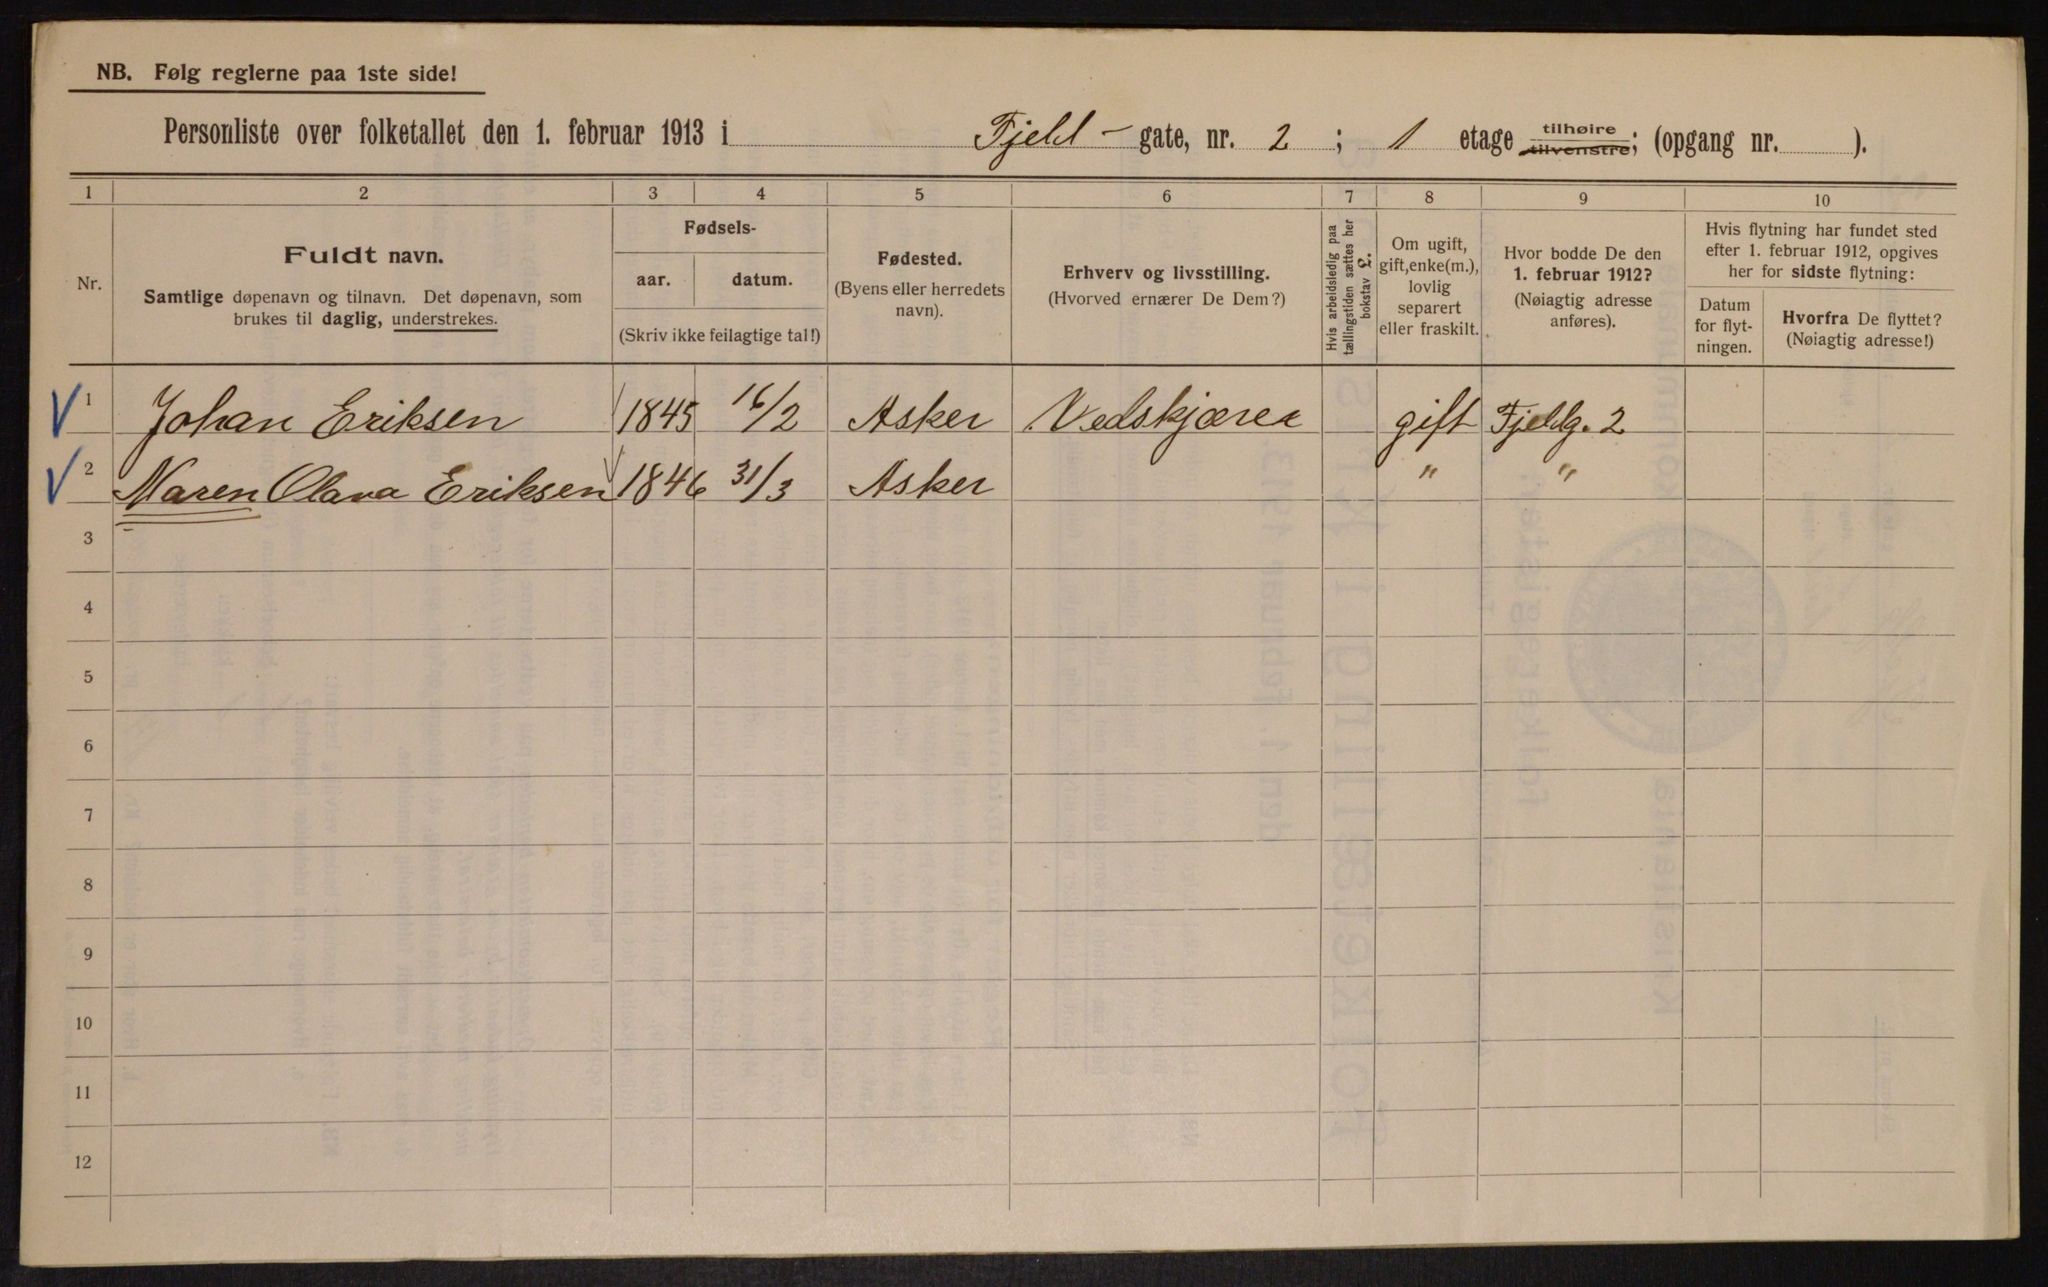 NB. Følg reglerne paa 1ste side!
Personliste over folketallet den 1. februar 1913 i Fjeld- gate, nr. 2 ; 1 etage tilhøire tilvenstre; (opgang nr. ).
1 2 3 4 5 6 7 8 9 10
Nr.
Fuldt navn.
Samtlige døpenavn og tilnavn. Det døpenavn, som
brukes til daglig, understrekes.
Fødsels-
aar. datum.
(Skriv ikke feilagtige tal!)
Fødested.
(Byens eller herredets
navn).
Erhverv og livsstilling.
(Hvorved ernærer De Dem?)
Hvis arbeidsledig paa
tællingstiden sættes her
bokstav L.
Om ugift,
gift, enke(m.),
lovlig
separert
eller fraskilt.
Hvor bodde De den
1. februar 1912?
(Nøiagtig adresse
anføres).
Hvis flytning har fundet sted
efter 1. februar 1912, opgives
her for sidste flytning:
Datum
for flyt-
ningen.
Hvorfra De flyttet?
(Nøiagtig adresse!)
1 Johan Eriksen 1845 16/2 Asker Vedskjærer gift Fjeldg. 2
2 Maren Olava Eriksen 1846 31/3 Asker " "
3
4
5
6
7
8
9
10
11
12